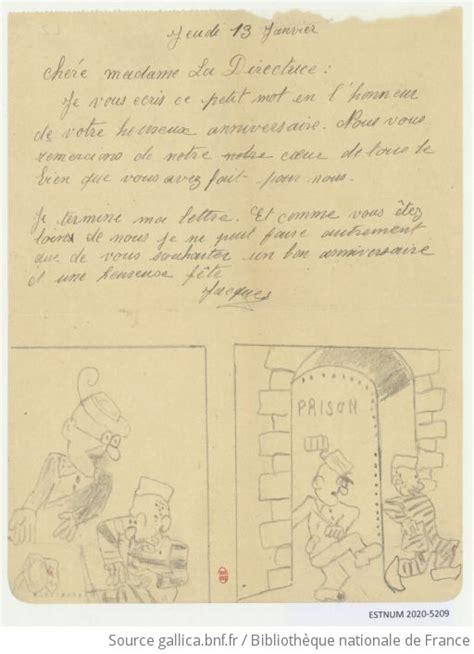 Jeudi 13 Janvier
chère madame La Directrice :
Je vous ecris ce petit mot en l'honneur
de votre heureux anniversaire. Nous vous
remercions de notre notre cœur de tous le
bien que vous avez fait pour nous.
Je termine ma lettre. Et comme vous êtez
loins de nous je ne peut faire autrement
que de vous souhaiter un bon anniversaire
et une heureuse fête
Jacques
PRISON
ESTNUM 2020-5209
Source gallica.bnf.fr / Bibliothèque nationale de France